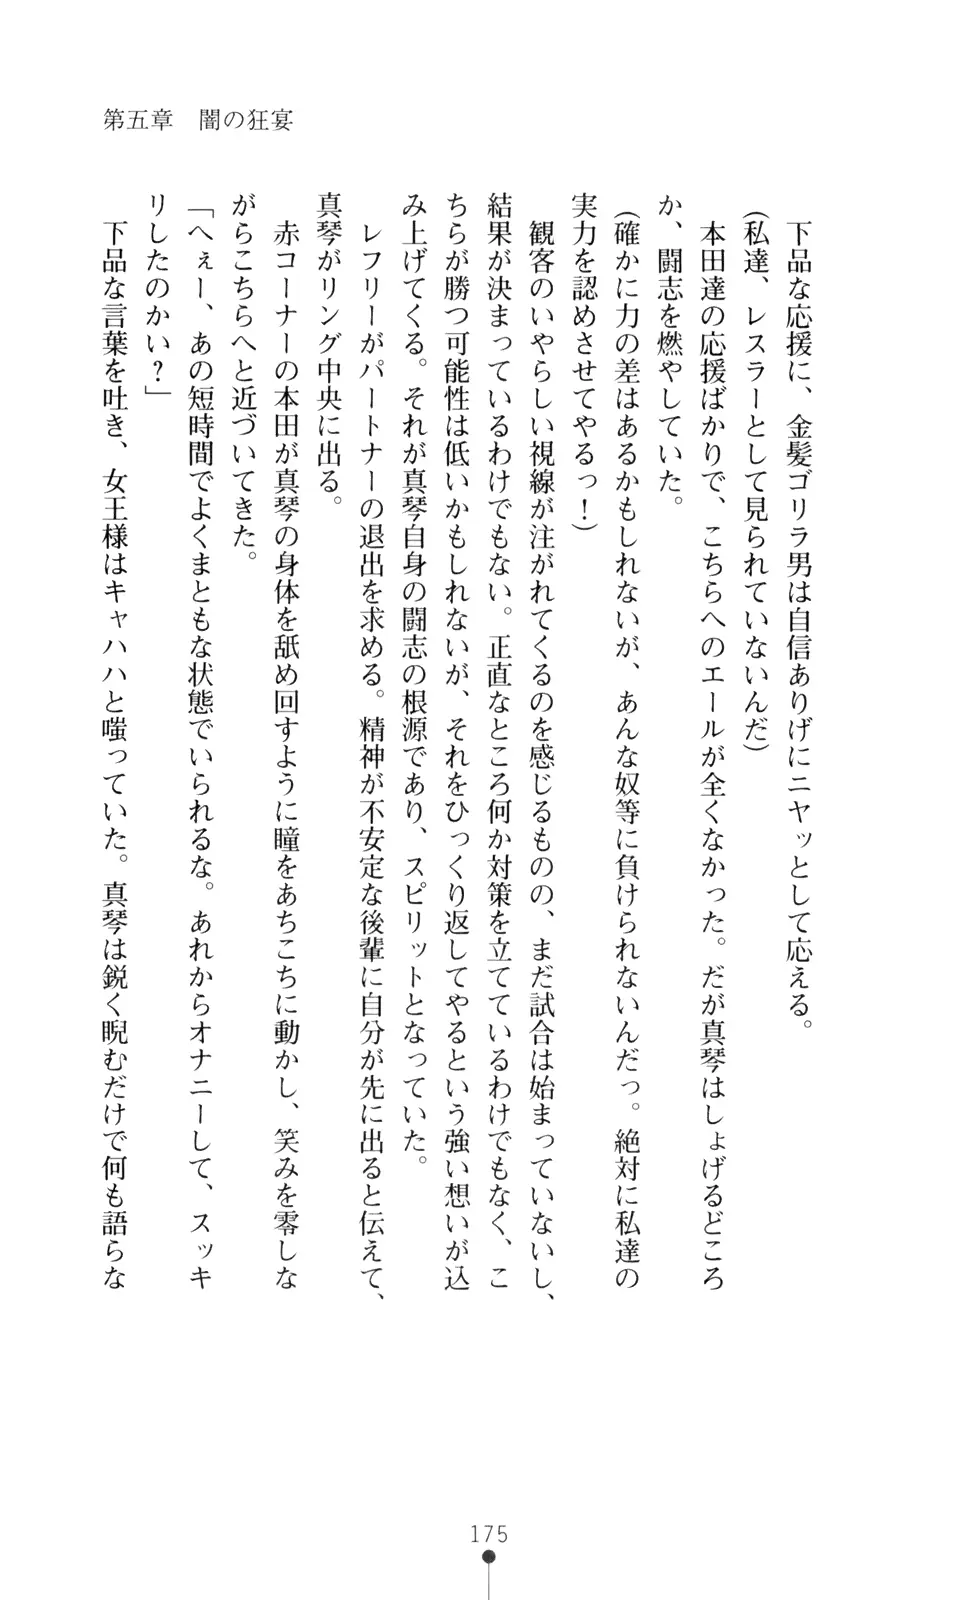 第五章　闇の狂宴
　下品な応援に、金髪ゴリラ男は自信ありげにニヤッとして応える。
(私達、レスラーとして見られていないんだ)
　本田達の応援ばかりで、こちらへのエールが全くなかった。だが真琴はしょげるどころ
か、闘志を燃やしていた。
(確かに力の差はあるかもしれないが、あんな奴等に負けられないんだっ。絶対に私達の
実力を認めさせてやるっ！)
　観客のいやらしい視線が注がれてくるのを感じるものの、まだ試合は始まっていないし、
結果が決まっているわけでもない。正直なところ何か対策を立てているわけでもなく、こ
ちらが勝つ可能性は低いかもしれないが、それをひっくり返してやるという強い想いが込
み上げてくる。それが真琴自身の闘志の根源であり、スピリットとなっていた。
　レフリーがパートナーの退出を求める。精神が不安定な後輩に自分が先に出ると伝えて、
真琴がリング中央に出る。
　赤コーナーの本田が真琴の身体を舐め回すように瞳をあちこちに動かし、笑みを零しな
がらこちらへと近づいてきた。
「へぇー、あの短時間でよくまともな状態でいられるな。あれからオナニーして、スッキ
リしたのかい？」
　下品な言葉を吐き、女王様はキャハハと嗤っていた。真琴は鋭く睨むだけで何も語らな
175